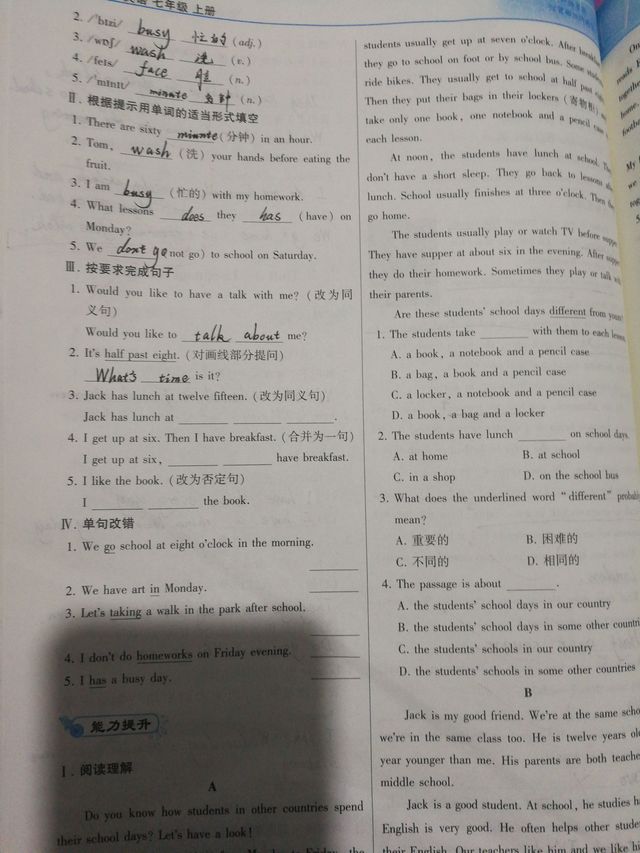 七年级 上册
2. /'bɪzi/ busy 忙的 (adj.)
3. /wɒʃ/ wash 洗 (v.)
4. /feɪs/ face 脸 (n.)
5. /'mɪnɪt/ minute 分钟 (n.)
Ⅱ. 根据提示用单词的适当形式填空
1. There are sixty minute (分钟) in an hour.
2. Tom, wash (洗) your hands before eating the
fruit.
3. I am busy (忙的) with my homework.
4. What lessons does they has (have) on
Monday?
5. We don't go not go) to school on Saturday.
Ⅲ. 按要求完成句子
1. Would you like to have a talk with me? (改为同
义句)
Would you like to talk about me?
2. It's half past eight. (对画线部分提问)
What's time is it?
3. Jack has lunch at twelve fifteen. (改为同义句)
Jack has lunch at ______ ______ ______.
4. I get up at six. Then I have breakfast. (合并为一句)
I get up at six, ______ ______ have breakfast.
5. I like the book. (改为否定句)
I ______ ______ the book.
Ⅳ. 单句改错
1. We go school at eight o'clock in the morning.
______
2. We have art in Monday. ______
3. Let's taking a walk in the park after school.
______
4. I don't do homeworks on Friday evening. ______
5. I has a busy day. ______
能力提升
Ⅰ. 阅读理解
A
Do you know how students in other countries spend
their school days? Let's have a look!
students usually get up at seven o'clock. After
they go to school on foot or by school bus. Some
ride bikes. They usually get to school at half past
Then they put their bags in their lockers (寄物柜)
take only one book, one notebook and a pencil
each lesson.
At noon, the students have lunch at school.
don't have a short sleep. They go back to lessons
lunch. School usually finishes at three o'clock. Then
go home.
The students usually play or watch TV before
They have supper at about six in the evening. After
they do their homework. Sometimes they play or talk
their parents.
Are these students' school days different from
1. The students take ______ with them to each
A. a book, a notebook and a pencil case
B. a bag, a book and a pencil case
C. a locker, a notebook and a pencil case
D. a book, a bag and a locker
2. The students have lunch ______ on school days.
A. at home B. at school
C. in a shop D. on the school bus
3. What does the underlined word “different”
mean?
A. 重要的 B. 困难的
C. 不同的 D. 相同的
4. The passage is about ______.
A. the students' school days in our country
B. the students' school days in some other
C. the students' schools in our country
D. the students' schools in some other countries
B
Jack is my good friend. We're at the same
we're in the same class too. He is twelve years
year younger than me. His parents are both
middle school.
Jack is a good student. At school, he studies
English is very good. He often helps other
their English. Our teachers like him and we like